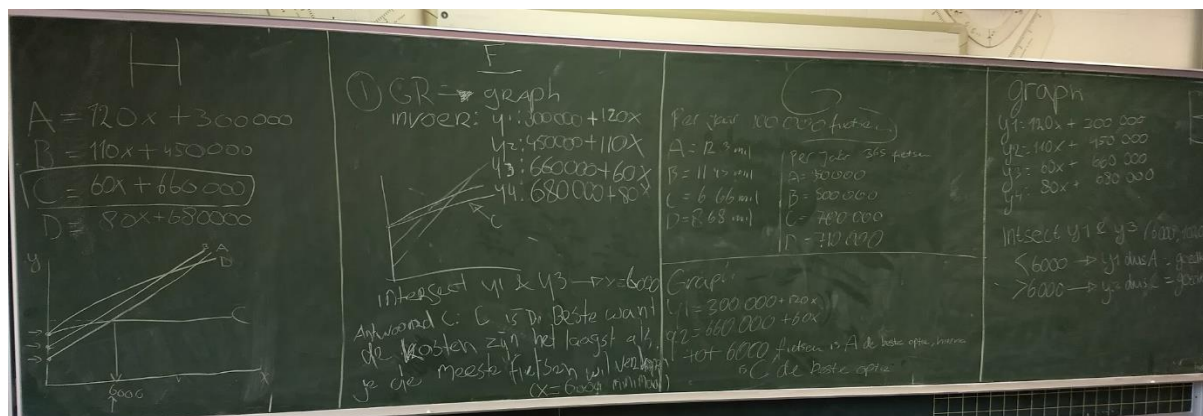 H
A = 120x + 300000
B = 110x + 450000
C = 60x + 660000
D = 80x + 680000
y
A
D
C
6000
F
① GR → graph
invoer: y1: 300000 + 120x
y2: 450000 + 110x
y3: 660000 + 60x
y4: 680000 + 80x
C
intersect y1 & y3 → x=6000
Antwoord C: C is De Beste want
de kosten zijn het laagst als
je de meeste fietsen wil
(x = 6000 minimaal)
G
Per jaar 100 000 fietsen
A = 12.3 mil
B = 11.45 mil
C = 6.66 mil
D = 8.68 mil
Per jaar 365 fietsen
B = 500.000
C = 700.000
D = 710.000
Graph:
y1 = 300.000 + 120x
y2 = 660.000 + 60x
tot 6000 fietsen is A de beste optie,
is C de beste optie
graph
y1 = 120x + 300 000
y2 = 110x + 450 000
y3 = 60x + 660 000
y4 = 80x + 680 000
Intsect y1 & y3
< 6000 → y1 dus A =
> 6000 → y3 dus C =